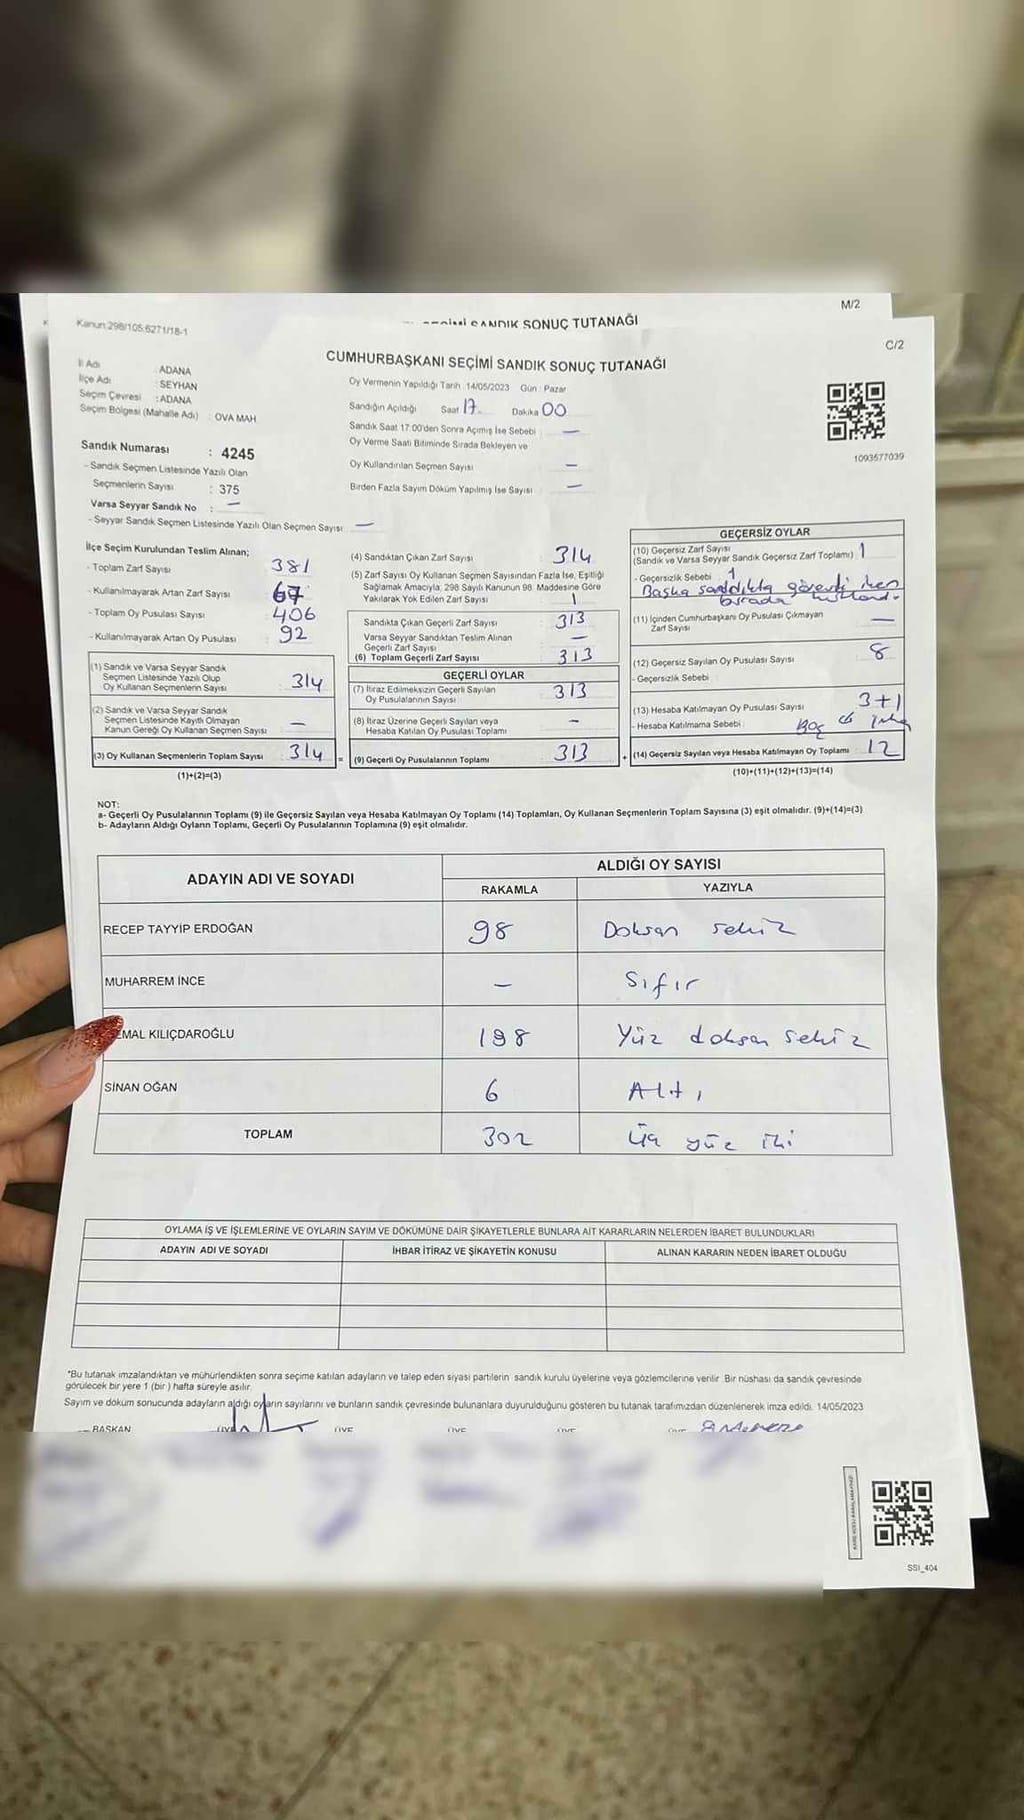 M/2
SEÇİMİ SANDIK SONUÇ TUTANAĞI
Kanun:298/105;6271/18-1
C/2
CUMHURBAŞKANI SEÇİMİ SANDIK SONUÇ TUTANAĞI
İl Adı : ADANA
İlçe Adı : SEYHAN
Seçim Çevresi : ADANA
Seçim Bölgesi (Mahalle Adı) : OVA MAH
Sandık Numarası : 4245
- Sandık Seçmen Listesinde Yazılı Olan
Seçmenlerin Sayısı : 375
Varsa Seyyar Sandık No : —
- Seyyar Sandık Seçmen Listesinde Yazılı Olan Seçmen Sayısı : —
Oy Vermenin Yapıldığı Tarih :14/05/2023 Gün : Pazar
Sandığın Açıldığı Saat 17 Dakika 00
Sandık Saat 17:00'den Sonra Açımış İse Sebebi : —
Oy Verme Saati Bitiminde Sırada Bekleyen ve
Oy Kullandırılan Seçmen Sayısı : —
Birden Fazla Sayım Döküm Yapılmış İse Sayısı : —
1093577039
İlçe Seçim Kurulundan Teslim Alınan;
- Toplam Zarf Sayısı : 381
- Kullanılmayarak Artan Zarf Sayısı : 67
- Toplam Oy Pusulası Sayısı : 406
- Kullanılmayarak Artan Oy Pusulası : 92
(1) Sandık ve Varsa Seyyar Sandık
Seçmen Listesinde Yazılı Olup
Oy Kullanan Seçmenlerin Sayısı : 314
(2) Sandık ve Varsa Seyyar Sandık
Seçmen Listesinde Kayıtlı Olmayan
Kanun Gereği Oy Kullanan Seçmen Sayısı : —
(3) Oy Kullanan Seçmenlerin Toplam Sayısı : 314
(1)+(2)=(3)
(4) Sandıktan Çıkan Zarf Sayısı : 314
(5) Zarf Sayısı Oy Kullanan Seçmen Sayısından Fazla İse, Eşitliği
Sağlamak Amacıyla, 298 Sayılı Kanunun 98. Maddesine Göre
Yakılarak Yok Edilen Zarf Sayısı : 1
Sandıkta Çıkan Geçerli Zarf Sayısı : 313
Varsa Seyyar Sandıktan Teslim Alınan
Geçerli Zarf Sayısı : —
(6) Toplam Geçerli Zarf Sayısı : 313
GEÇERLİ OYLAR
(7) İtiraz Edilmeksizin Geçerli Sayılan
Oy Pusulasının Sayısı : 313
(8) İtiraz Üzerine Geçerli Sayılan veya
Hesaba Katılan Oy Pusulası Toplamı : —
(9) Geçerli Oy Pusulalarının Toplamı : 313
GEÇERSİZ OYLAR
(10) Geçersiz Zarf Sayısı
(Sandık ve Varsa Seyyar Sandık Geçersiz Zarf Toplamı) 1
- Geçersizlik Sebebi : 1
Başka sandıkta görevli iken
burada
(11) İçinden Cumhurbaşkanı Oy Pusulası Çıkmayan
Zarf Sayısı : —
(12) Geçersiz Sayılan Oy Pusulası Sayısı : 8
- Geçersizlik Sebebi :
(13) Hesaba Katılmayan Oy Pusulası Sayısı : 3+1
- Hesaba Katılmama Sebebi : Boş
(14) Geçersiz Sayılan veya Hesaba Katılmayan Oy Toplamı : 12
(10)+(11)+(12)+(13)=(14)
NOT:
a- Geçerli Oy Pusulalarının Toplamı (9) ile Geçersiz Sayılan veya Hesaba Katılmayan Oy Toplamı (14) Toplamları, Oy Kullanan Seçmenlerin Toplam Sayısına (3) eşit olmalıdır. (9)+(14)=(3)
b- Adayların Aldığı Oyların Toplamı, Geçerli Oy Pusulalarının Toplamına (9) eşit olmalıdır.
ADAYIN ADI VE SOYADI
ALDIĞI OY SAYISI
RAKAMLA YAZIYLA
RECEP TAYYİP ERDOĞAN 98 Doksan sekiz
MUHARREM İNCE — Sıfır
EMAL KILIÇDAROĞLU 198 Yüz doksan sekiz
SİNAN OĞAN 6 Altı
TOPLAM 302 Üç yüz iki
OYLAMA İŞ VE İŞLEMLERİNE VE OYLARIN SAYIM VE DÖKÜMÜNE DAİR ŞİKAYETLERLE BUNLARA AİT KARARLARIN NELERDEN İBARET BULUNDUKLARI
ADAYIN ADI VE SOYADI İHBAR İTİRAZ VE ŞİKAYETİN KONUSU ALINAN KARARIN NEDEN İBARET OLDUĞU
*Bu tutanak imzalandıktan ve mühürlendikten sonra seçime katılan adayların ve talep eden siyasi partilerin sandık kurulu üyelerine veya gözlemcilerine verilir. Bir nüshası da sandık çevresinde
görülecek bir yere 1 (bir) hafta süreyle asılır.
Sayım ve döküm sonucunda adayların aldığı oyların sayılarını ve bunların sandık çevresinde bulunanlara duyurulduğunu gösteren bu tutanak tarafımızdan düzenlenerek imza edildi. 14/05/2023
BAŞKAN ÜYE ÜYE ÜYE ÜYE ÜYE
SSI_404